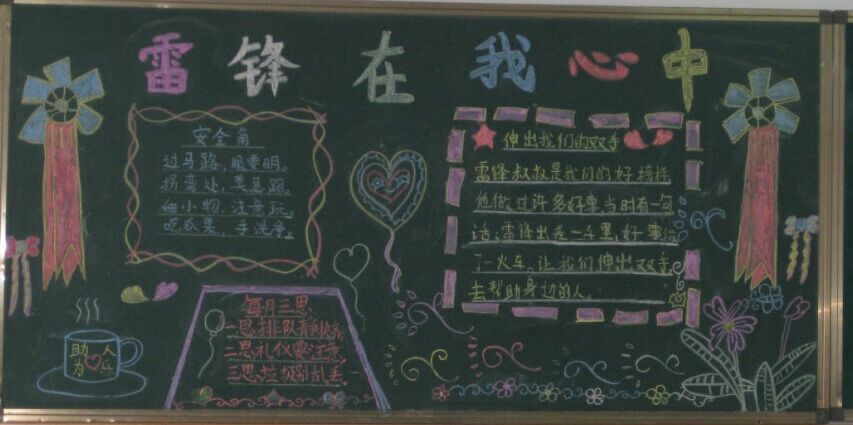 雷锋在我心中
安全角
过马路，眼要明。
拐弯处，莫急跑，
细小物，注意玩，
吃瓜果，手洗净。
伸出我们的双手
雷锋叔叔是我们的好榜样
他做过许多好事，当时有一句
话：雷锋出差一千里，好事做
了一火车。让我们伸出双手
去帮助身边的人。
每月三思
一思排队有
二思礼仪要注意
三思垃圾别乱丢
助人
为乐